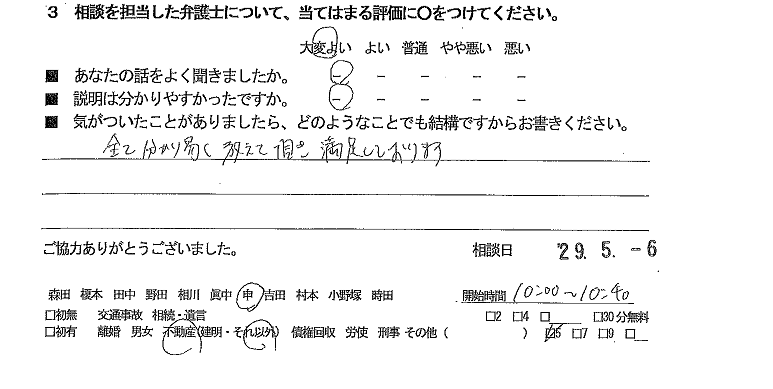 3 相談を担当した弁護士について、当てはまる評価に〇をつけてください。
大変よい よい 普通 やや悪い 悪い
■ あなたの話をよく聞きましたか。 － － － － －
■ 説明は分かりやすかったですか。 － － － － －
■ 気がついたことがありましたら、どのようなことでも結構ですからお書きください。
全て分かり易く教えて頂き満足しております
ご協力ありがとうございました。 相談日 '29. 5. -6
森田 榎本 田中 野田 相川 眞中 申 吉田 村本 小野塚 時田 開始時間 10:00～10:40
□初無 交通事故 相続・遺言 □2 □4 □ □30分無料
□初有 離婚 男女 不動産(建明・それ以外) 債権回収 労使 刑事 その他 ( ) □5 □7 □9 □